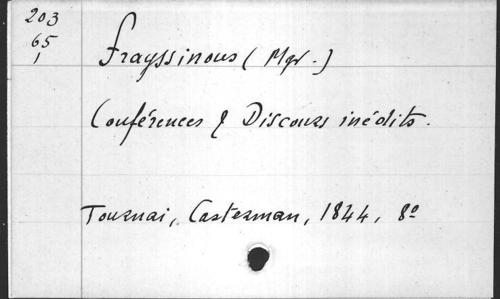 203
65
1
Frayssinous (Mgr.)
Conférences & Discours inédits.
Tournai, Casterman, 1844, 8º